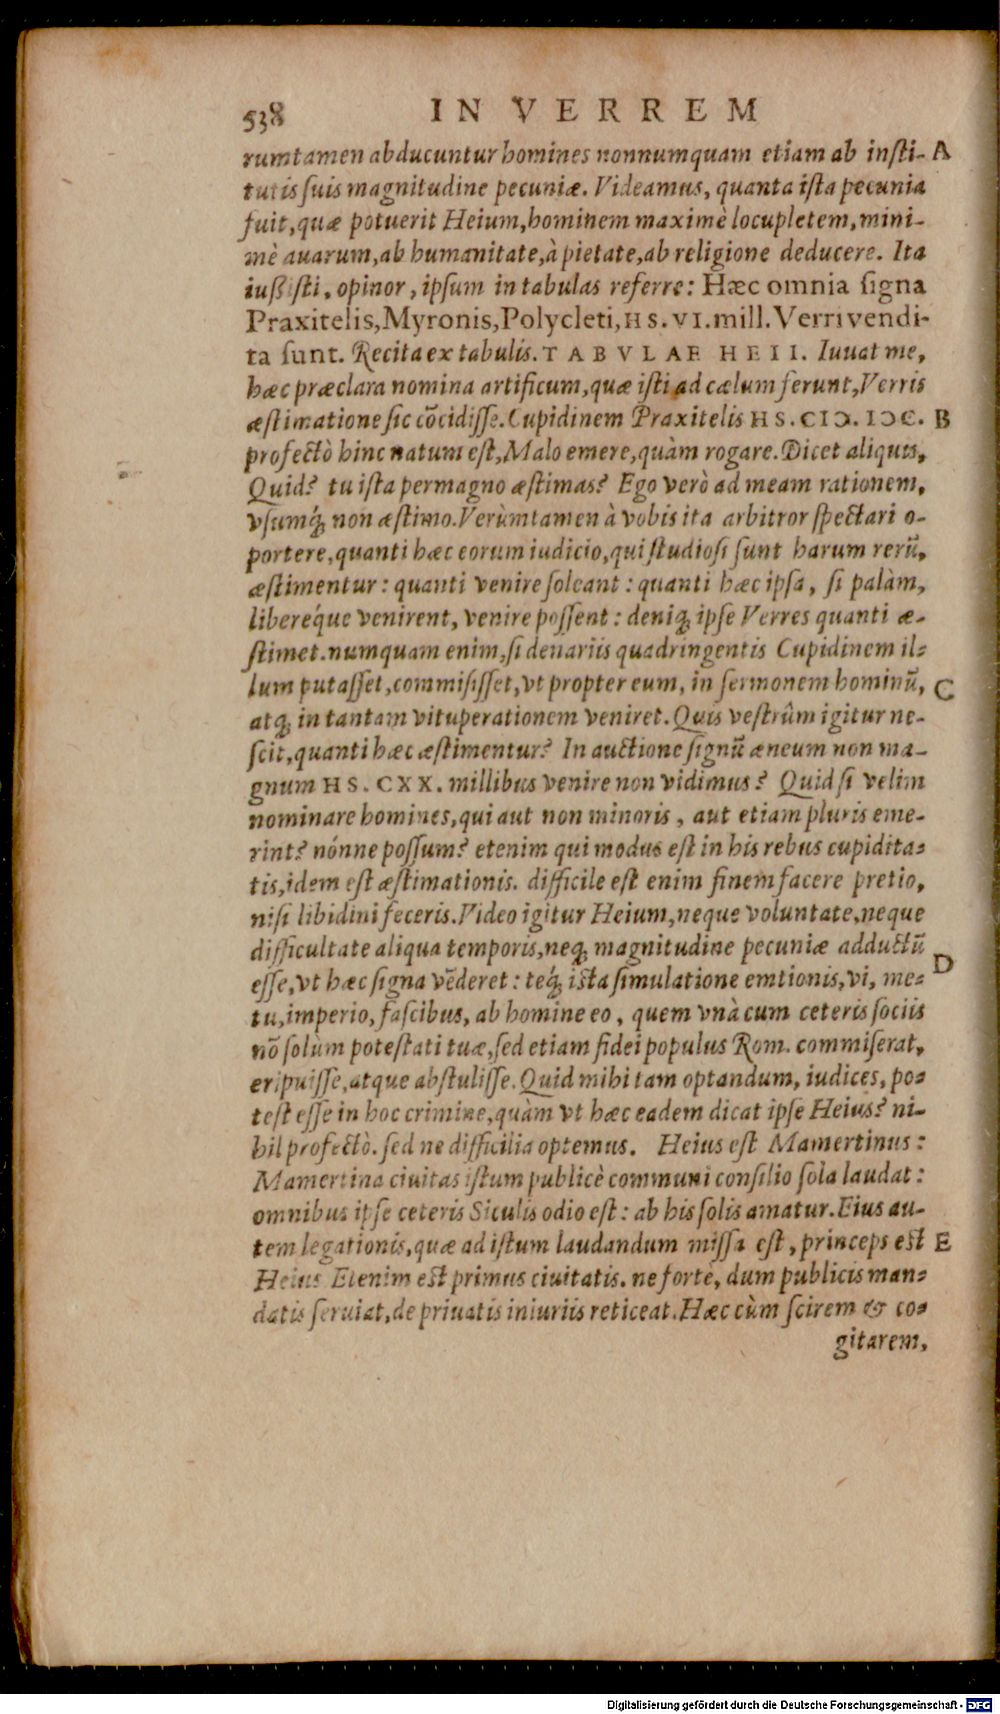 538 IN VERREM
rumtamen abducuntur homines nonnumquam etiam ab insti- A
tutis suis magnitudine pecuniæ. Videamus, quanta ista pecunia
fuit, quæ potuerit Heium, hominem maximè locupletem, mini-
mè auarum, ab humanitate, à pietate, ab religione deducere. Ita
iußisti, opinor, ipsum in tabulas referre: Hæc omnia signa
Praxitelis, Myronis, Polycleti, HS. VI. mill. Verri vendi-
ta sunt. Recita ex tabulis. TABVLAE HEII. Iuuat me,
hæc præclara nomina artificum, quæ isti ad cælum ferunt, Verris
æstimatione sic cõcidisse. Cupidinem Praxitelis HS. CIↃ. IↃC. B
profectò hinc natum est, Malo emere, quàm rogare. Dicet aliquis,
Quid? tu ista permagno æstimas? Ego verò ad meam rationem,
vsumq́; non æstimo. Verùmtamen à vobis ita arbitror spectari o-
portere, quanti hæc eorum iudicio, qui studiosi sunt harum rerũ,
æstimentur: quanti venire soleant: quanti hæc ipsa, si palàm,
libereq́ue venirent, venire possent: deniq; ipse Verres quanti æ-
stimet. numquam enim, si denariis quadringentis Cupidinem il-
lum putasset, commisisset, vt propter eum, in sermonem hominũ, C
atq; in tantam vituperationem veniret. Quis vestrûm igitur ne-
scit, quanti hæc æstimentur? In auctione signũ æneum non ma-
gnum HS. CXX. millibus venire non vidimus? Quid si velim
nominare homines, qui aut non minoris, aut etiam pluris eme-
rint? nónne possum? etenim qui modus est in his rebus cupidita-
tis, idem est æstimationis. difficile est enim finem facere pretio,
nisi libidini feceris. Video igitur Heium, neque voluntate, neque
difficultate aliqua temporis, neq; magnitudine pecuniæ adductũ
esse, vt hæc signa vẽderet: teq́; ista simulatione emtionis, vi, me- D
tu, imperio, fascibus, ab homine eo, quem vnà cum ceteris sociis
nõ solùm potestati tuæ, sed etiam fidei populus Rom. commiserat,
eripuisse, atque abstulisse. Quid mihi tam optandum, iudices, po-
test esse in hoc crimine, quàm vt hæc eadem dicat ipse Heius? ni-
hil profectò. sed ne difficilia optemus. Heius est Mamertinus:
Mamertina ciuitas istum publicè communi consilio sola laudat:
omnibus ipse ceteris Siculis odio est: ab his solis amatur. Eius au-
tem legationis, quæ ad istum laudandum missa est, princeps est E
Heius. Etenim est primus ciuitatis. ne fortè, dum publicis man-
datis seruiat, de priuatis iniuriis reticeat. Hæc cùm scirem & co-
gitarem,
Digitalisierung gefördert durch die Deutsche Forschungsgemeinschaft - DFG